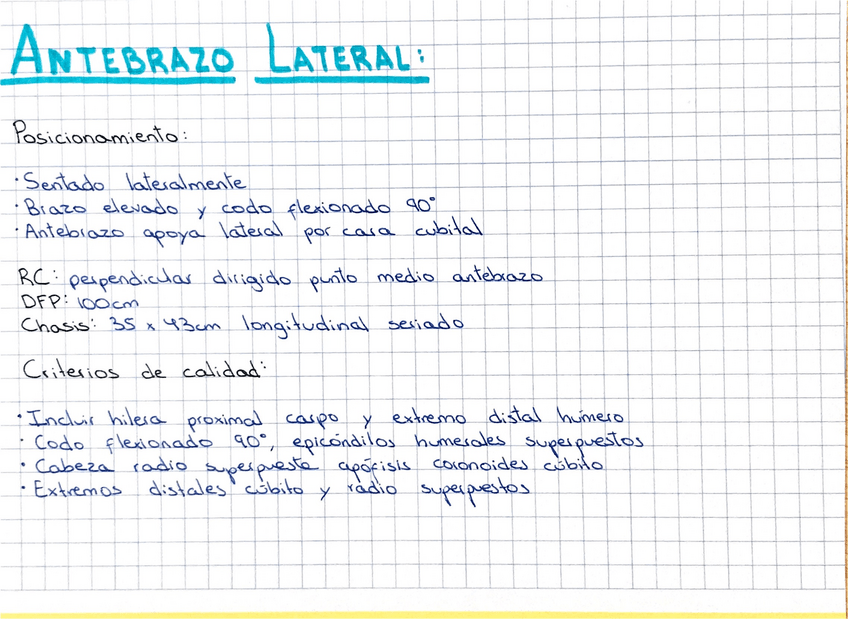 ANTEBRAZO LATERAL:
Posicionamiento:
· Sentado lateralmente
· Brazo elevado y codo flexionado 90°
· Antebrazo apoya lateral por cara cubital
RC: perpendicular dirigido punto medio antebrazo
DFP: 100cm
Chasis: 35 x 43cm longitudinal seriado
Criterios de calidad:
· Incluir hilera proximal carpo y extremo distal húmero
· Codo flexionado 90°, epicóndilos humerales superpuestos
· Cabeza radio superpuesta apófisis coronoides cúbito
· Extremos distales cúbito y radio superpuestos